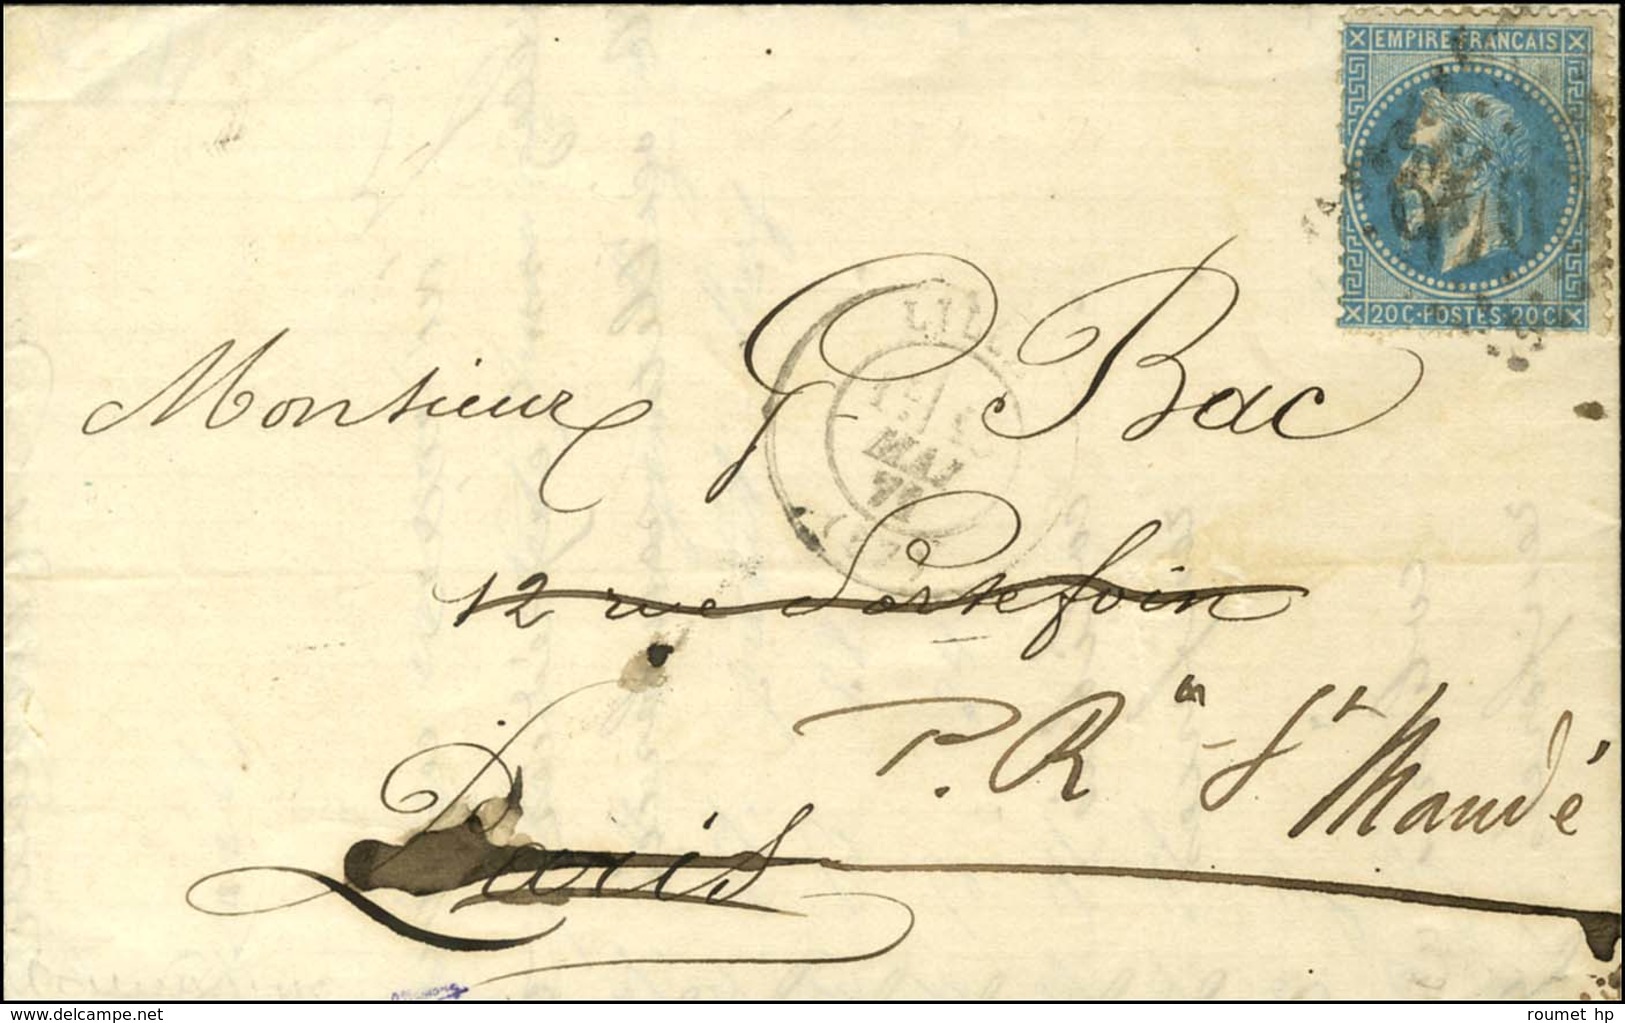 EMPIRE FRANCAIS
20C-POSTES-20C
LILLE
MAI
71
Monsieur G. Bac
12 rue Portefoin
P. Rn - St Mandé
Paris
www.delcampe.net
roumet hp